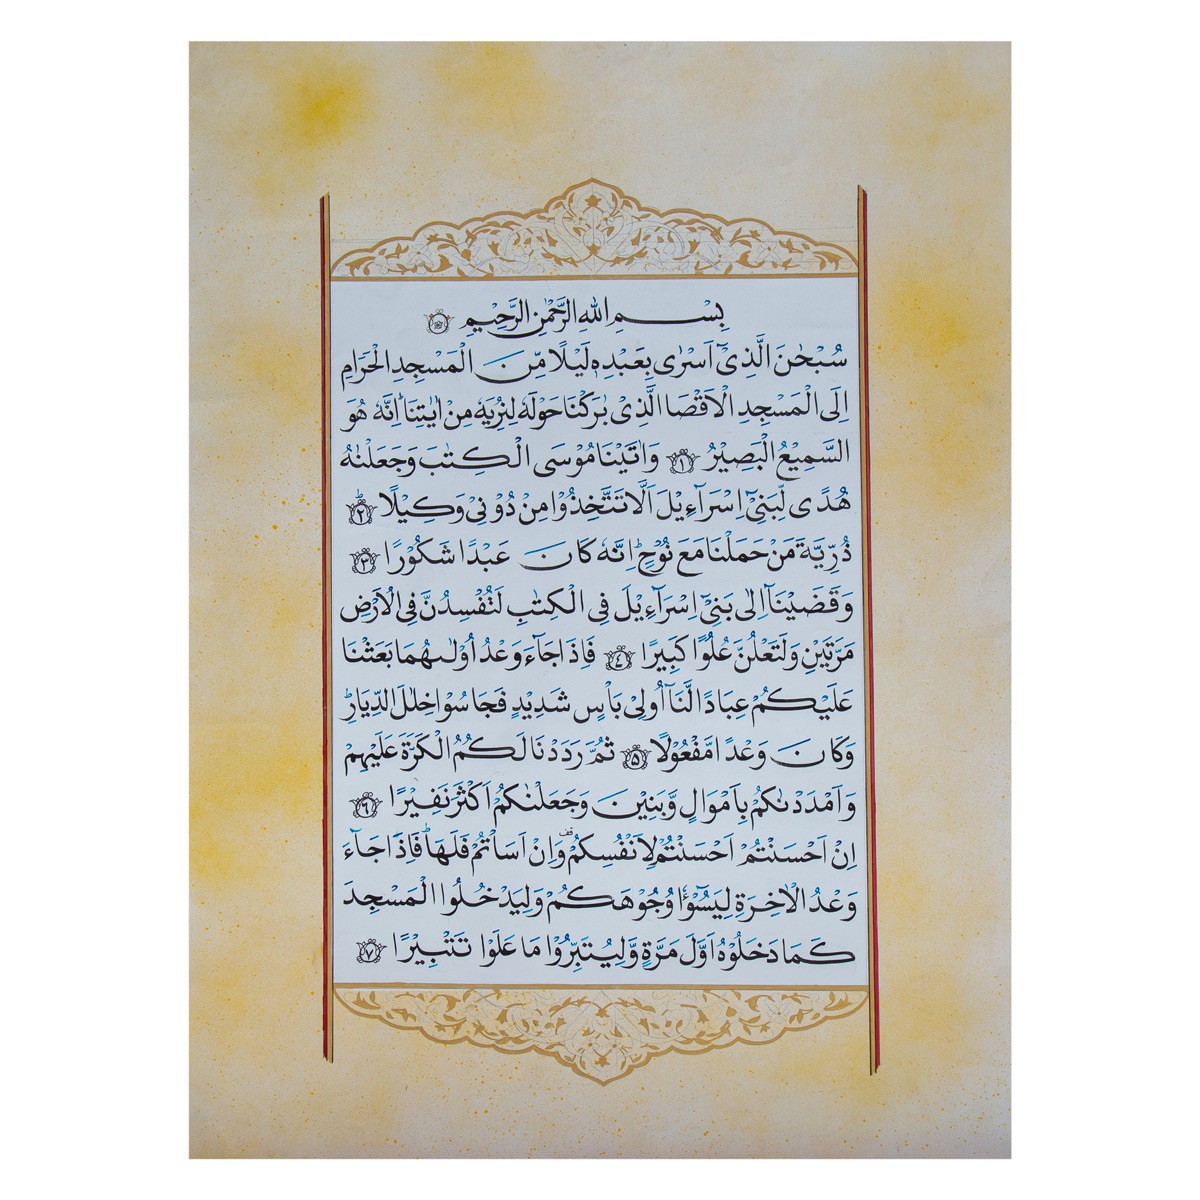 بِسْمِ اللهِ الرَّحْمٰنِ الرَّحِيْمِ
سُبْحٰنَ الَّذِیْۤ اَسْرٰی بِعَبْدِهٖ لَيْلًا مِّنَ الْمَسْجِدِ الْحَرَامِ
اِلَی الْمَسْجِدِ الْاَقْصَا الَّذِیْ بٰرَكْنَا حَوْلَهٗ لِنُرِيَهٗ مِنْ اٰيٰتِنَا ؕ اِنَّهٗ هُوَ
السَّمِيْعُ الْبَصِيْرُ ﴿۱﴾ وَاٰتَيْنَا مُوْسَی الْكِتٰبَ وَجَعَلْنٰهُ
هُدًی لِّبَنِیْۤ اِسْرَآءِيْلَ اَلَّا تَتَّخِذُوْا مِنْ دُوْنِیْ وَكِيْلًا ؕ ﴿۲﴾
ذُرِّيَّةَ مَنْ حَمَلْنَا مَعَ نُوْحٍ ؕ اِنَّهٗ كَانَ عَبْدًا شَكُوْرًا ﴿۳﴾
وَقَضَيْنَاۤ اِلٰی بَنِیْۤ اِسْرَآءِيْلَ فِی الْكِتٰبِ لَتُفْسِدُنَّ فِی الْاَرْضِ
مَرَّتَيْنِ وَلَتَعْلُنَّ عُلُوًّا كَبِيْرًا ﴿۴﴾ فَاِذَا جَآءَ وَعْدُ اُوْلٰىهُمَا بَعَثْنَا
عَلَيْكُمْ عِبَادًا لَّنَاۤ اُولِیْ بَاْسٍ شَدِيْدٍ فَجَاسُوْا خِلٰلَ الدِّيَارِ ؕ
وَكَانَ وَعْدًا مَّفْعُوْلًا ﴿۵﴾ ثُمَّ رَدَدْنَا لَكُمُ الْكَرَّةَ عَلَيْهِمْ
وَاَمْدَدْنٰكُمْ بِاَمْوَالٍ وَّبَنِيْنَ وَجَعَلْنٰكُمْ اَكْثَرَ نَفِيْرًا ﴿۶﴾
اِنْ اَحْسَنْتُمْ اَحْسَنْتُمْ لِاَنْفُسِكُمْ قف وَاِنْ اَسَاْتُمْ فَلَهَا ؕ فَاِذَا جَآءَ
وَعْدُ الْاٰخِرَةِ لِيَسُوْٓءٗا وُجُوْهَكُمْ وَلِيَدْخُلُوا الْمَسْجِدَ
كَمَا دَخَلُوْهُ اَوَّلَ مَرَّةٍ وَّلِيُتَبِّرُوْا مَا عَلَوْا تَتْبِيْرًا ﴿۷﴾